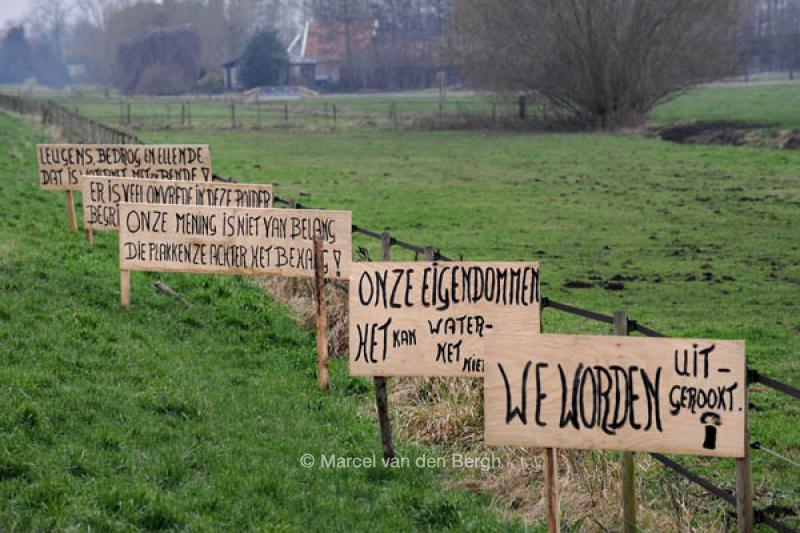 LEUGENS, BEDROG EN ELLENDE
DAT IS WATERNET MET ER BENDE!
ER IS VEEL ONVREDE IN DEZE POLDER
ONZE MENING IS NIET VAN BELANG
DIE PLAKKEN ZE ACHTER HET BEHANG!
ONZE EIGENDOMMEN
HET KAN WATER-
NET NIET
WE WORDEN UIT-
GEROOKT.
© Marcel van den Bergh